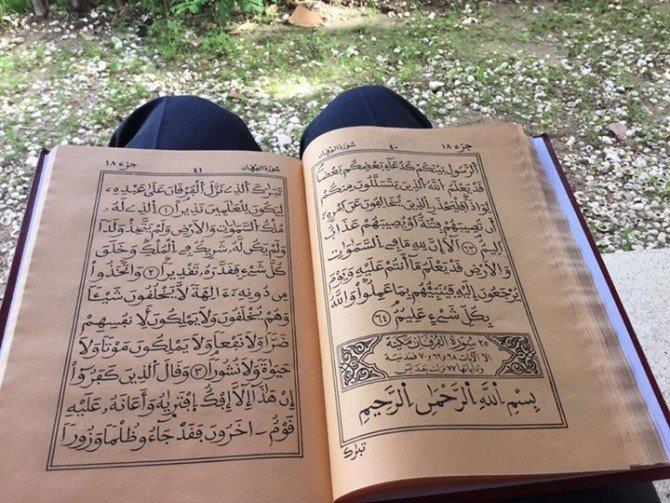 جزء ١٨ ٤٠ سورة الفرقان
الرَّسُولِ بَيْنَكُمْ كَدُعَآءِ بَعْضِكُم بَعْضًا
قَدْ يَعْلَمُ اللَّهُ الَّذِينَ يَتَسَلَّلُونَ مِنكُمْ
لِوَاذًا فَلْيَحْذَرِ الَّذِينَ يُخَالِفُونَ عَنْ أَمْرِهِ
أَن تُصِيبَهُمْ فِتْنَةٌ أَوْ يُصِيبَهُمْ عَذَابٌ
أَلِيمٌ ٦٣ أَلَآ إِنَّ لِلَّهِ مَا فِي السَّمَٰوَٰتِ
وَالْأَرْضِ قَدْ يَعْلَمُ مَآ أَنتُمْ عَلَيْهِ وَيَوْمَ
يُرْجَعُونَ إِلَيْهِ فَيُنَبِّئُهُم بِمَا عَمِلُوا وَاللَّهُ
بِكُلِّ شَيْءٍ عَلِيمٌ ٦٤
٢٥ سورة الفرقان مكية
الا الآيات ٦٨ و٦٩ و٧٠ فمدنية
وآياتها ٧٧ نزلت بعد يس
بِسْمِ اللَّهِ الرَّحْمَٰنِ الرَّحِيمِ
تبرك
سورة الفرقان ٤١ جزء ١٨
تَبَٰرَكَ الَّذِي نَزَّلَ الْفُرْقَانَ عَلَىٰ عَبْدِهِ
لِيَكُونَ لِلْعَٰلَمِينَ نَذِيرًا ١ الَّذِي لَهُ
مُلْكُ السَّمَٰوَٰتِ وَالْأَرْضِ وَلَمْ يَتَّخِذْ وَلَدًا
وَلَمْ يَكُن لَّهُ شَرِيكٌ فِي الْمُلْكِ وَخَلَقَ
كُلَّ شَيْءٍ فَقَدَّرَهُ تَقْدِيرًا ٢ وَاتَّخَذُوا
مِن دُونِهِ ءَالِهَةً لَّا يَخْلُقُونَ شَيْـًٔا
وَهُمْ يُخْلَقُونَ وَلَا يَمْلِكُونَ لِأَنفُسِهِمْ
ضَرًّا وَلَا نَفْعًا وَلَا يَمْلِكُونَ مَوْتًا وَلَا
حَيَوٰةً وَلَا نُشُورًا ٣ وَقَالَ الَّذِينَ كَفَرُوٓا
إِنْ هَٰذَآ إِلَّآ إِفْكٌ افْتَرَىٰهُ وَأَعَانَهُ عَلَيْهِ
قَوْمٌ ءَاخَرُونَ فَقَدْ جَآءُو ظُلْمًا وَزُورًا